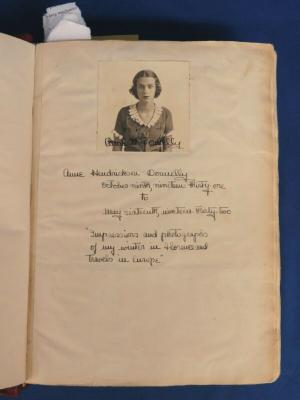 Anne H Donnelly
Anne Hendrickson Donnelly
October ninth, nineteen thirty one
to
may sixteenth, nineteen thirty-two
"Impressions and photographs
of my winter in Florence and
Travels in Europe"